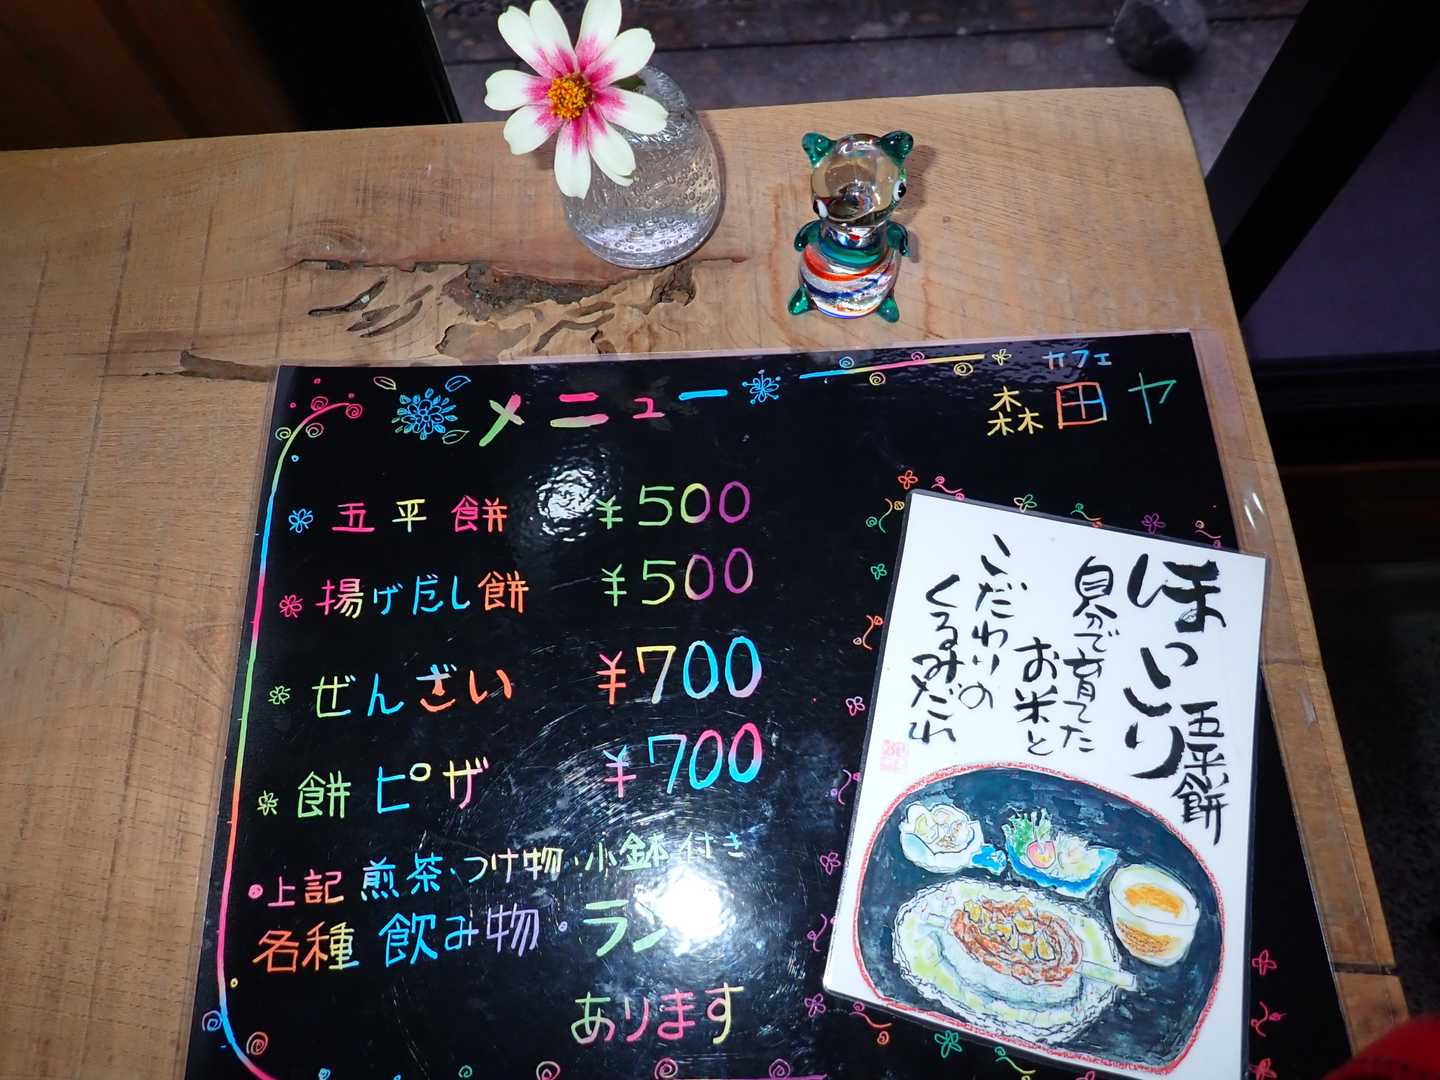 メニュー
カフェ
森田ヤ
五平餅 ¥500
揚げだし餅 ¥500
ぜんざい ¥700
餅ピザ ¥700
・上記 煎茶・つけ物・小鉢付き
各種 飲み物・ラン
あります
ほっこり
五平餅
自分で育てた
お米と
こだわりの
くるみだれ